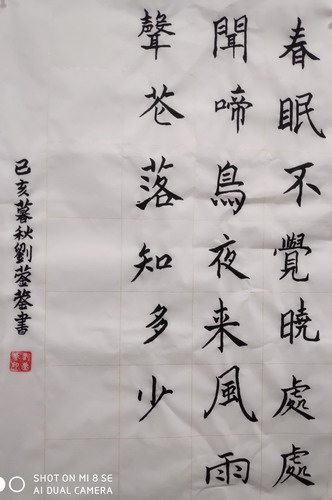 春眠不覺曉處處
聞啼鳥夜来風雨
聲花落知多少
己亥暮秋劉蓥蓥書
SHOT ON MI 8 SE
AI DUAL CAMERA